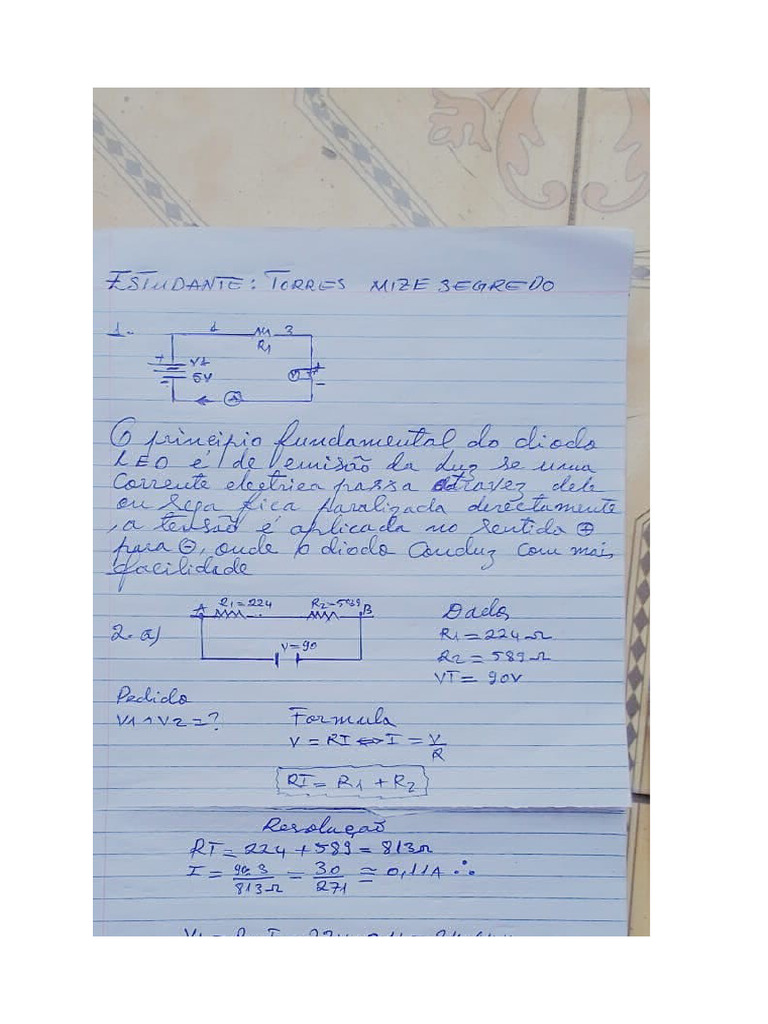 ESTUDANTE: TORRES MIZE SEGREDO
1-
1 R1 3
+ V1
5V
-
+
-
A
O principio fundamental do diodo
LED é de emisão da Luz se uma
Corrente electrica passa atravez dele
ou seja fica paralizada directamente
, a tensão é aplicada no sentido ⊕
para ⊖, onde o diodo Conduz com mais
facilidade
A R1=224 R2=589 B
V=90
2. a)
Dados
R1=224Ω
R2=589Ω
VT=90V
Pedido
V1 ∧ V2=?
Formula
V=RI ⇔ I=V/R
RT=R1+R2
Resolução
RT=224+589=813Ω
I=90:3/813Ω=30/271≅0,11A ∴